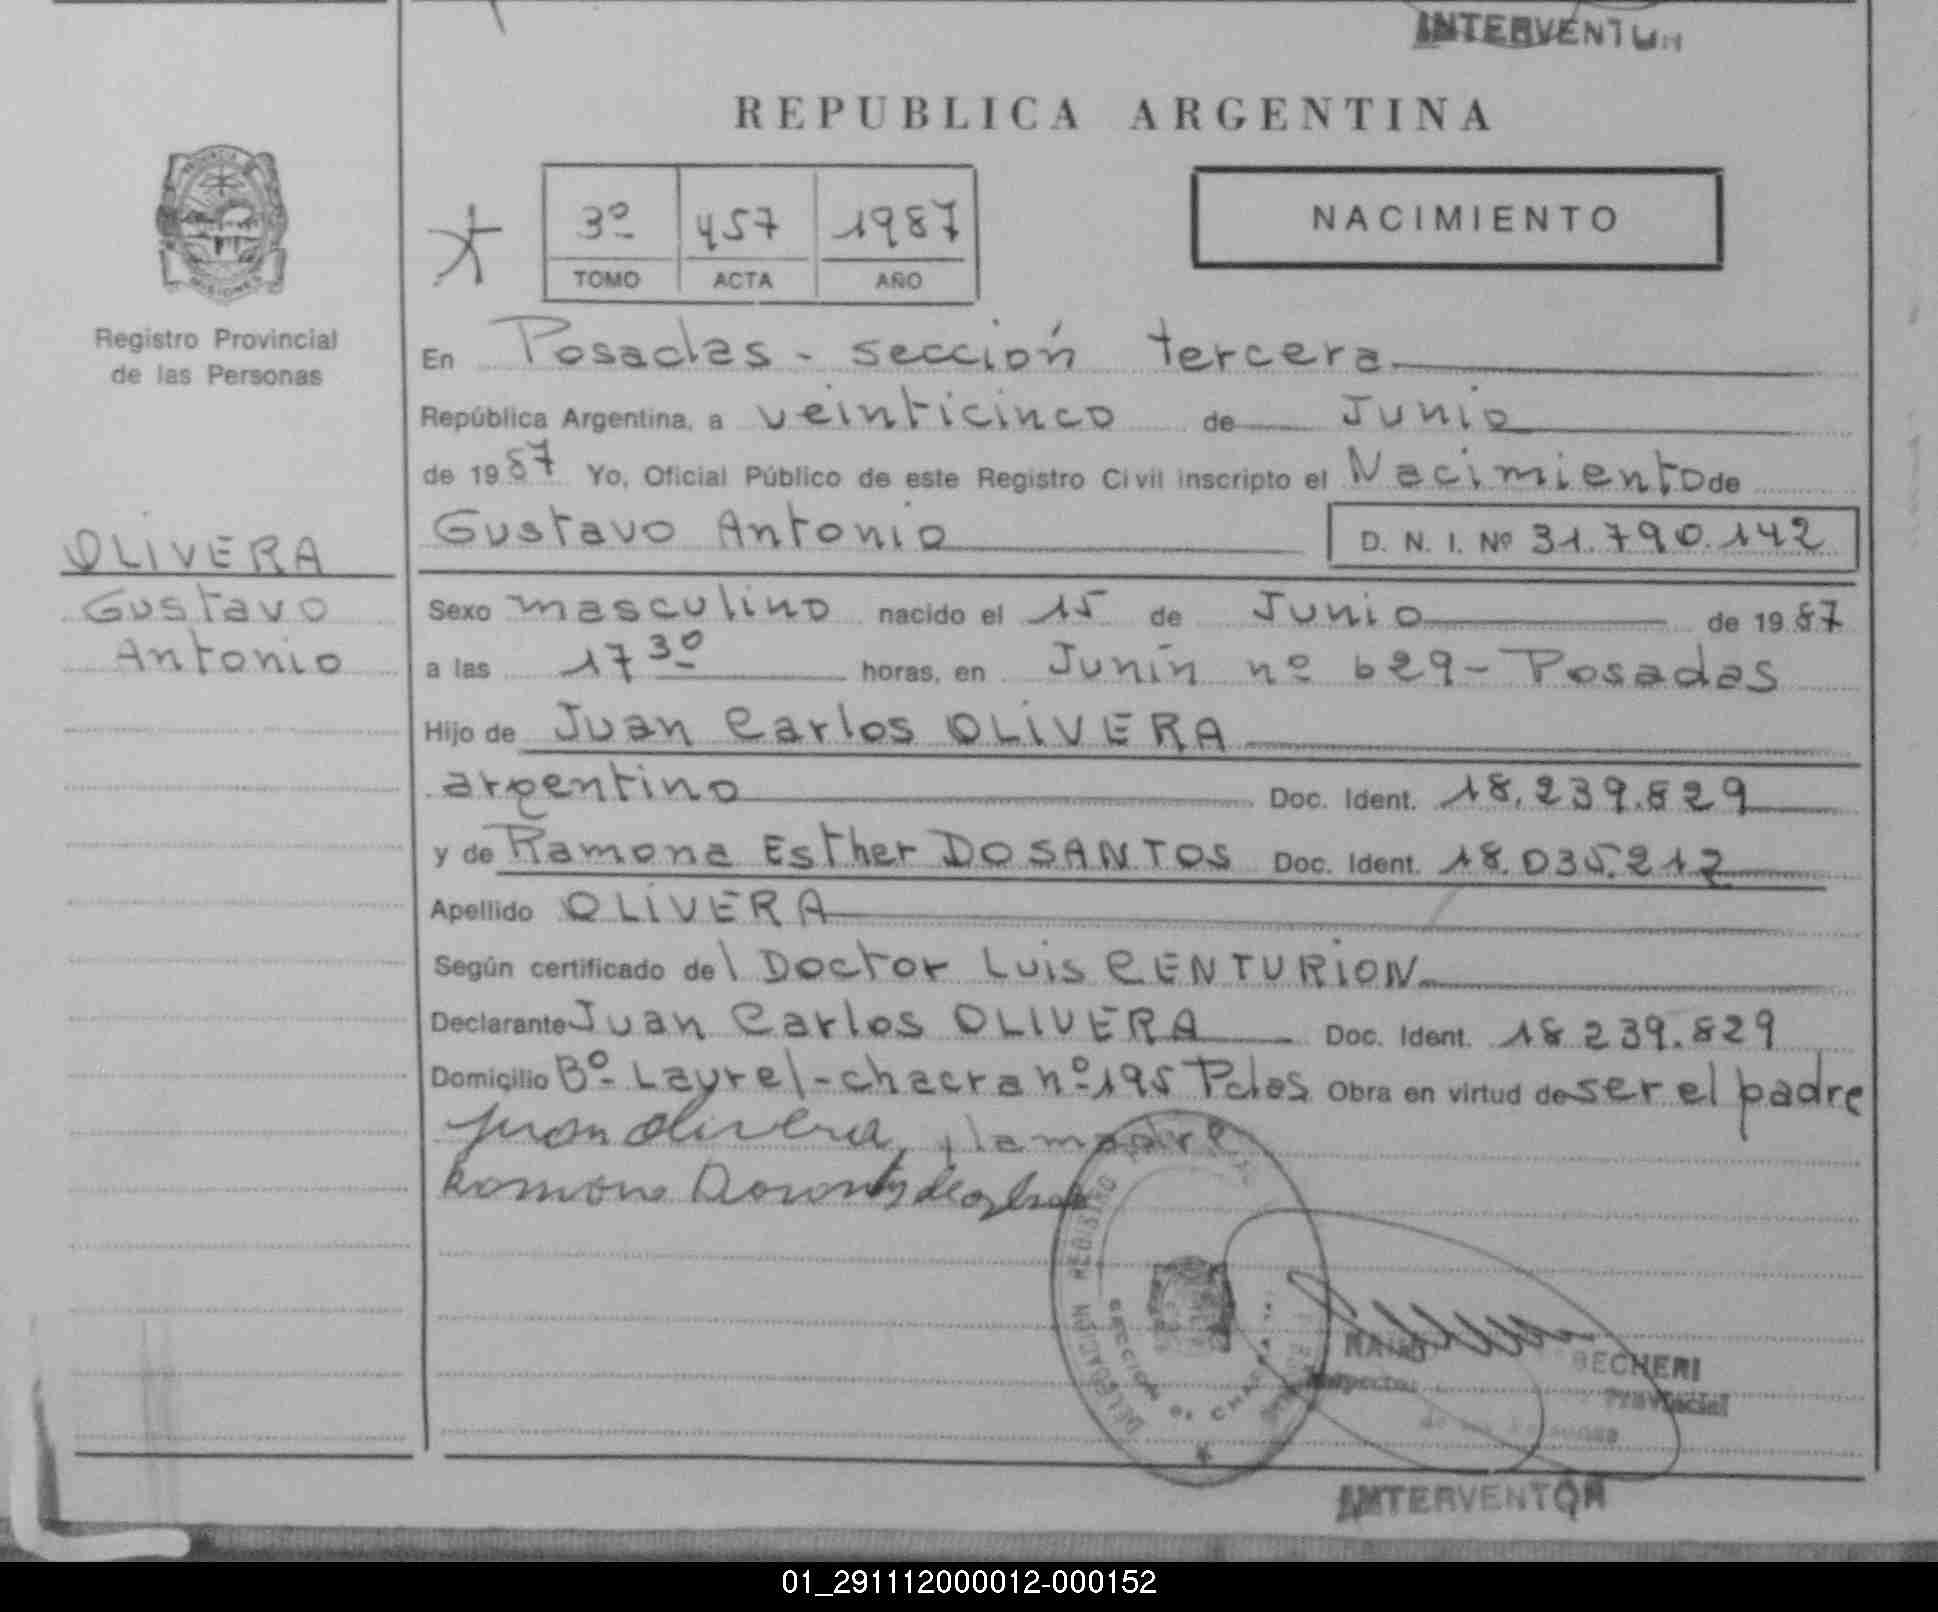 INTERVENTOR
REPUBLICA ARGENTINA
3º 457 1987
TOMO ACTA AÑO
NACIMIENTO
Registro Provincial
de las Personas
OLIVERA
Gustavo
Antonio
En Posadas - sección tercera
República Argentina, a veinticinco de Junio
de 1987 Yo, Oficial Público de este Registro Civil inscripto el Nacimiento de
Gustavo Antonio D. N. I. Nº 31.790.142
Sexo masculino nacido el 15 de Junio de 1987
a las 17 30 horas, en Junín nº 629 - Posadas
Hijo de Juan Carlos OLIVERA
argentino Doc. Ident. 18.239.829
y de Ramona Esther DOSANTOS Doc. Ident. 18.035.212
Apellido OLIVERA
Según certificado del Doctor Luis CENTURION
Declarante Juan Carlos OLIVERA Doc. Ident. 18.239.829
Domicilio Bº Laurel - chacra nº 195 Pdas Obra en virtud de ser el padre
Juan Olivera, y la madre
Ramona
DELEGACION REGISTRO
SECCION
BECHERI
Provincial
INTERVENTOR
01_291112000012-000152